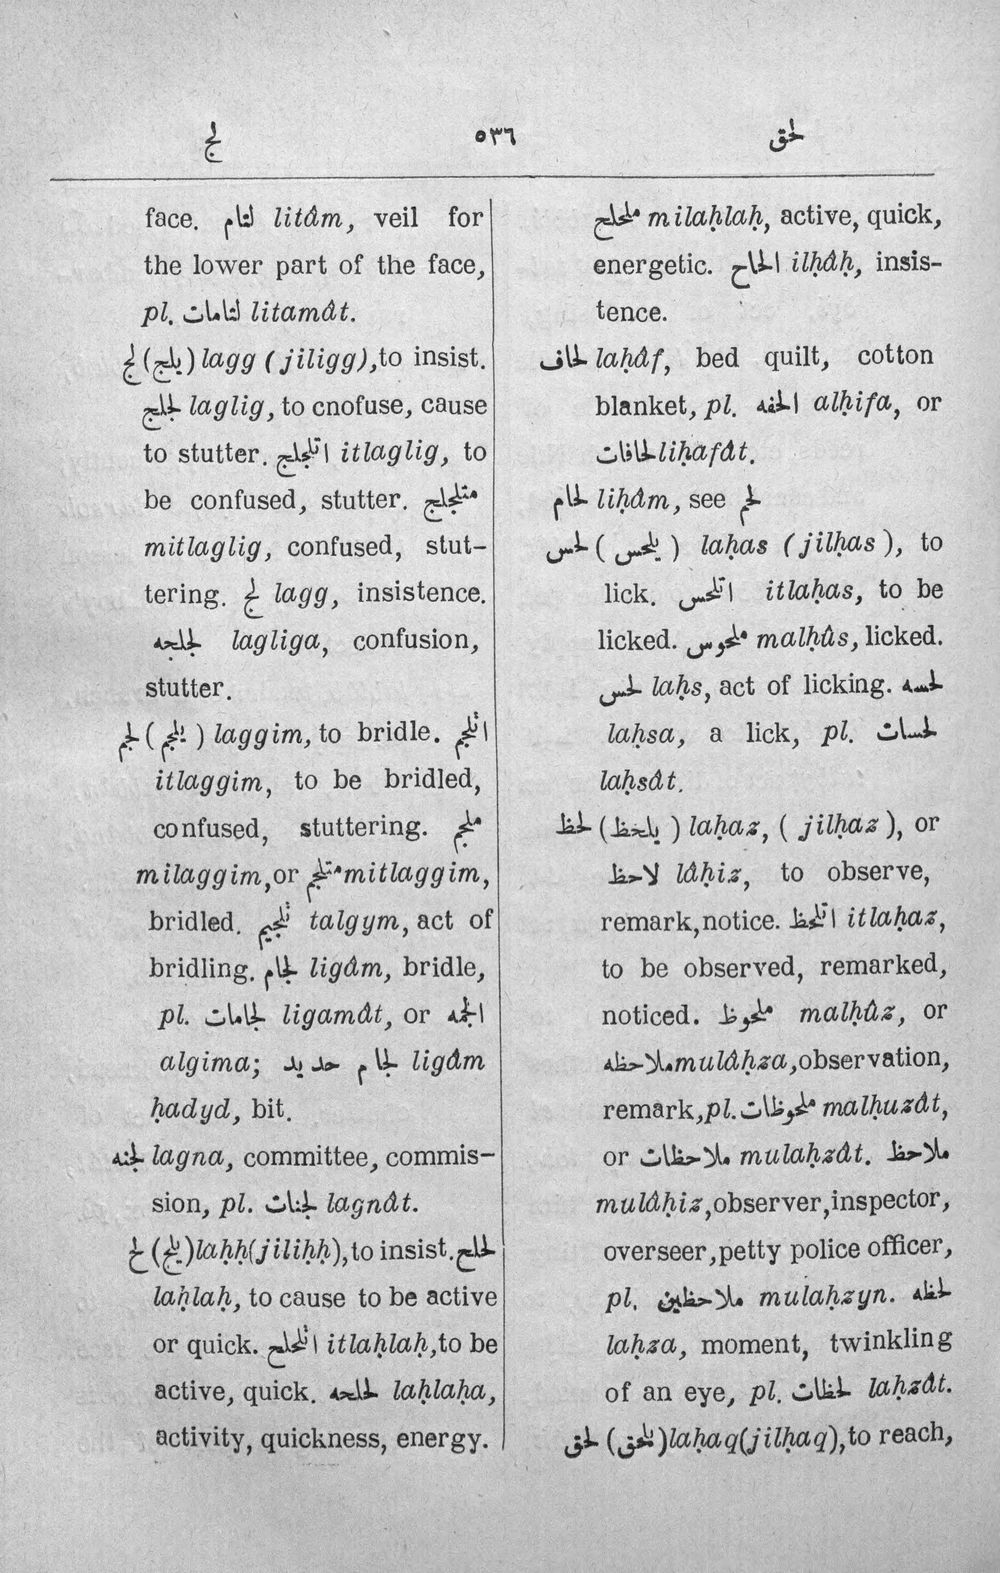 لج ٥٣٦ لحق
face. لثام litâm, veil for
the lower part of the face,
pl. لثامات litamât.
لج (يلج) lagg (jiligg), to insist.
لجلج laglig, to cnofuse, cause
to stutter. اتلجلج itlaglig, to
be confused, stutter. متلجلج
mitlaglig, confused, stut-
tering. لج lagg, insistence.
لجلجه lagliga, confusion,
stutter.
لجم (يلجم) laggim, to bridle. اتلجم
itlaggim, to be bridled,
confused, stuttering. ملجم
milaggim, or متلجم mitlaggim,
bridled. تلجيم talgym, act of
bridling. لجام ligâm, bridle,
pl. لجامات ligamât, or الجمه
algima; لجام حديد ligâm
ḥadyd, bit.
لجنه lagna, committee, commis-
sion, pl. لجنات lagnât.
لح (يلح) laḥḥ (jiliḥḥ), to insist. لحلح
laḥlaḥ, to cause to be active
or quick. اتلحلح itlaḥlaḥ, to be
active, quick. لحلحه laḥlaḥa,
activity, quickness, energy.
ملحلح milaḥlaḥ, active, quick,
energetic. الحاح ilḥâḥ, insis-
tence.
لحاف laḥâf, bed quilt, cotton
blanket, pl. الحفه alḥifa, or
لحافات liḥafât.
لحام liḥâm, see لحم
لحس (يلحس) laḥas (jilḥas), to
lick. اتلحس itlaḥas, to be
licked. ملحوس malḥûs, licked.
لحس laḥs, act of licking. لحسه
laḥsa, a lick, pl. لحسات
laḥsât.
لحظ (يلحظ) laḥaz, (jilḥaz), or
لاحظ lâḥiz, to observe,
remark, notice. اتلحظ itlaḥaz,
to be observed, remarked,
noticed. ملحوظ malḥûz, or
ملاحظه mulâḥza, observation,
remark, pl. ملحوظات malḥuzât,
or ملاحظات mulaḥzât. ملاحظ
mulâḥiz, observer, inspector,
overseer, petty police officer,
pl. ملاحظين mulaḥzyn. لحظه
laḥza, moment, twinkling
of an eye, pl. لحظات laḥzât.
لحق (يلحق) laḥaq (jilḥaq), to reach,